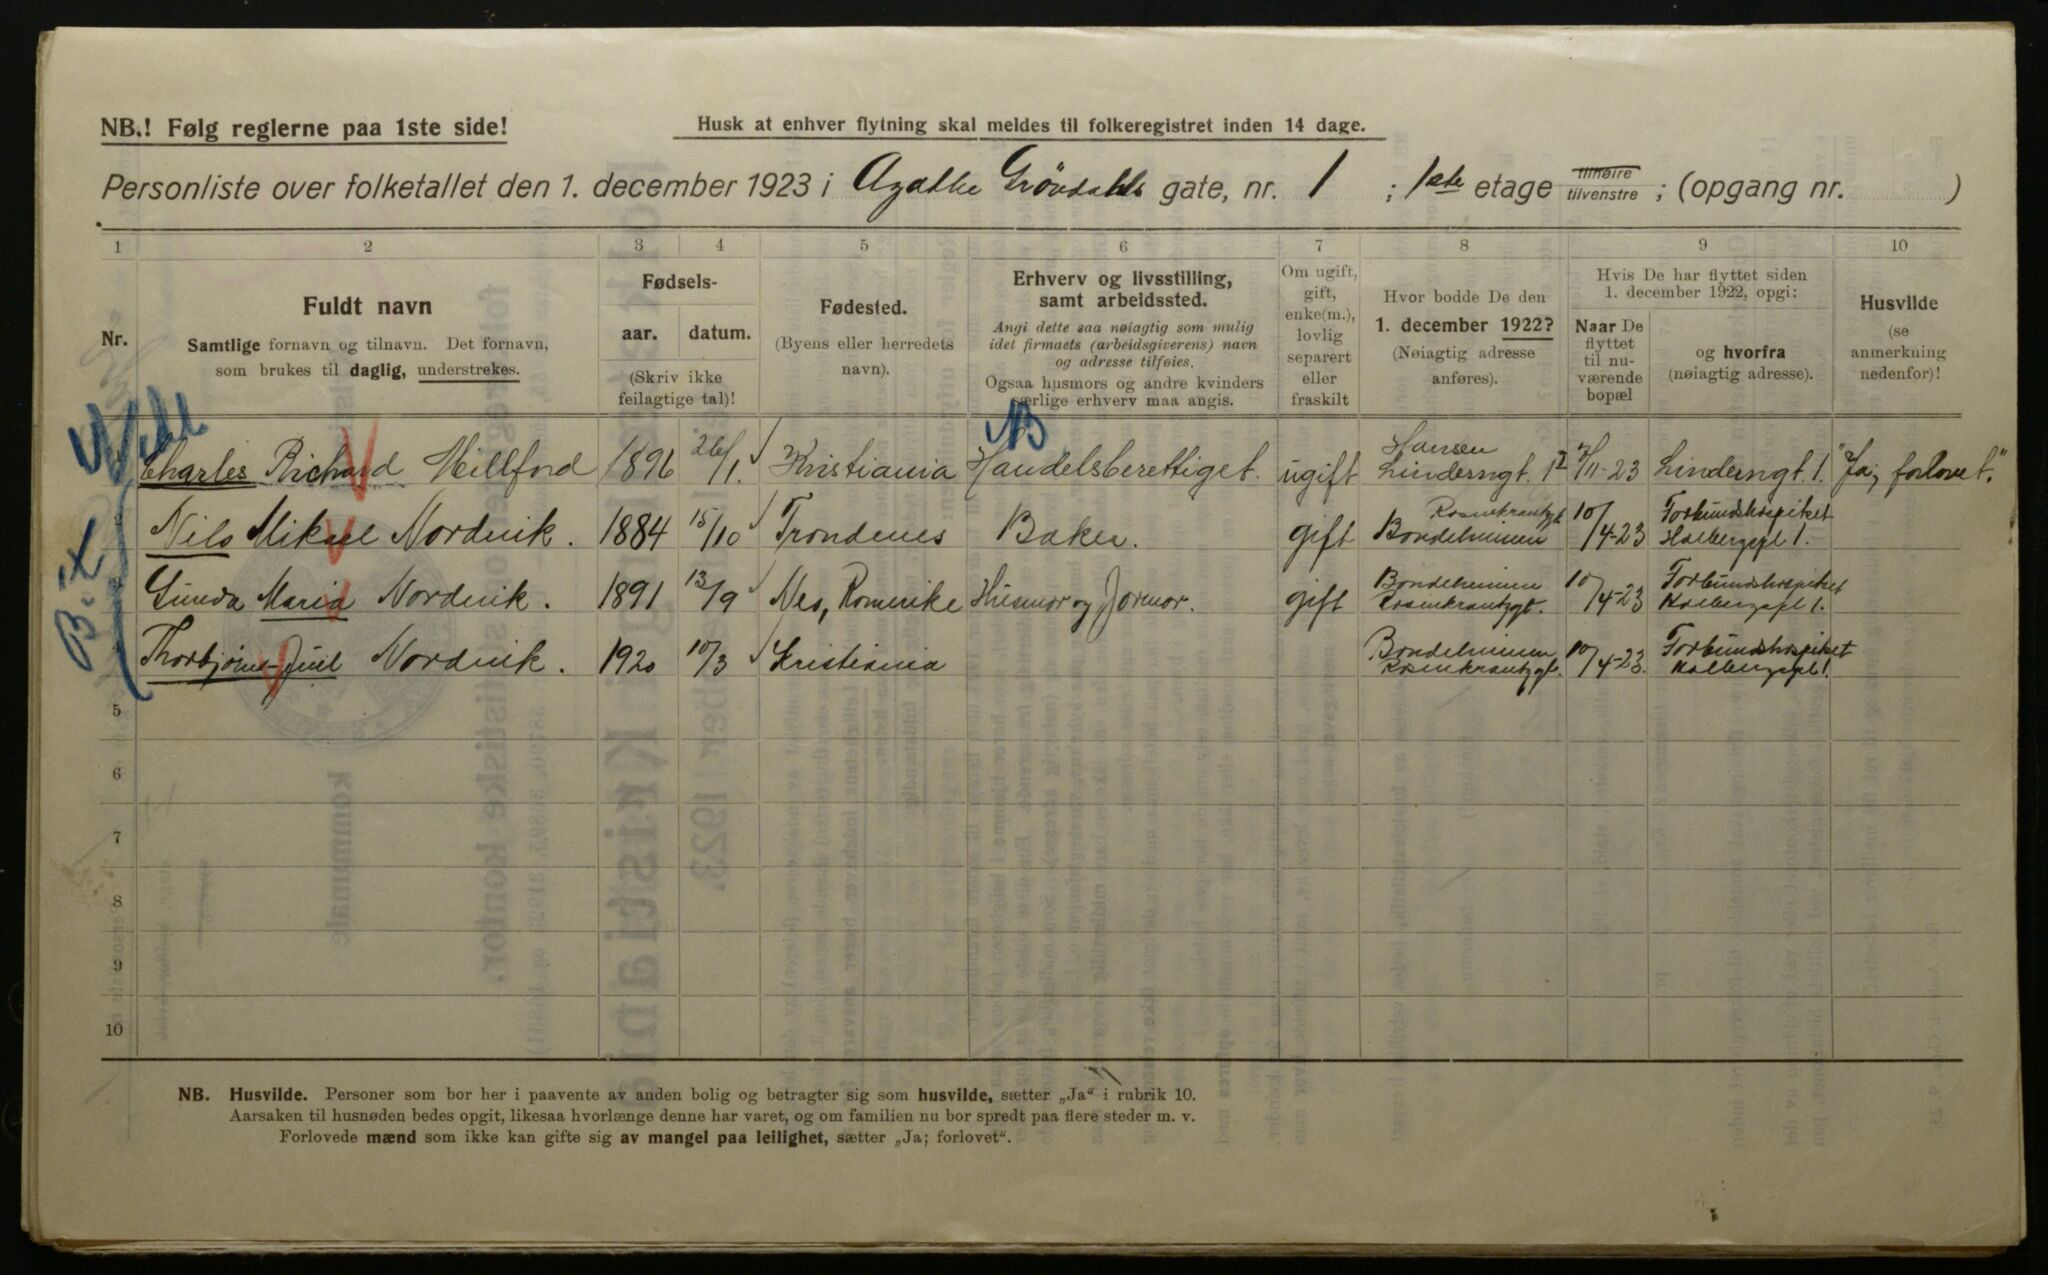 NB.! Følg reglerne paa 1ste side!
Husk at enhver flytning skal meldes til folkeregistret inden 14 dage.
Personliste over folketallet den 1. december 1923 i Agathe Gröndahls gate, nr. 1 ; 1ste etage tilhøire tilvenstre ; (opgang nr. )
1 2 3 4 5 6 7 8 9 10
Nr.
Fuldt navn
Samtlige fornavn og tilnavn. Det fornavn,
som brukes til daglig, understrekes.
Fødsels-
aar. datum.
(Skriv ikke
feilagtige tal)!
Fødested.
(Byens eller herredets
navn).
Erhverv og livsstilling,
samt arbeidssted.
Angi dette saa nøiagtig som mulig
idet firmaets (arbeidsgiverens) navn
og adresse tilføies.
Ogsaa husmors og andre kvinders
særlige erhverv maa angis.
Om ugift,
gift,
enke(m.),
lovlig
separert
eller
fraskilt
Hvor bodde De den
1. december 1922?
(Nøiagtig adresse
anføres).
Hvis De har flyttet siden
1. december 1922, opgi:
Naar De
flyttet
til nu-
værende
bopæl
og hvorfra
(nøiagtig adresse).
Husvilde
(se
anmerkning
nedenfor)!
Charles Richard Millford 1896 26/1 Kristiania Handelsberettiget. ugift Hansen Linderngt. 1 /11-23 Linderngt. 1. "Ja; forlovet."
Nils Mikael Nordvik. 1884 15/10 Trondenes Baker. gift Rosenkrantzgt. Bondeheimen 10/4-23 Forbundshospiket Holbergspl 1.
Gunda Maria Nordvik. 1891 13/9 Nes, Romerike Husmor og Jormor. gift Bondeheimen Rosenkrantzgt. 10/4-23 Forbundshospiket Holbergspl 1.
4 Thorbjørn-Juel Nordvik. 1920 10/3 Kristiania Bondeheimen Rosenkrantzgt. 10/4-23. Forbundshospiket Holbergspl 1.
5
6
7
8
9
10
NB. Husvilde. Personer som bor her i paavente av anden bolig og betragter sig som husvilde, sætter „Ja" i rubrik 10.
Aarsaken til husnøden bedes opgit, likesaa hvorlænge denne har varet, og om familien nu bor spredt paa flere steder m. v.
Forlovede mænd som ikke kan gifte sig av mangel paa leilighet, sætter „Ja; forlovet".